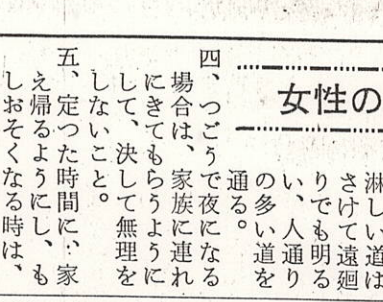 女性の
淋しい道は
さけて遠廻
りでも明る
い、人通り
の多い道を
通る。
四、つごうで夜になる
場合は、家族に連れ
にきてもらうように
して、決して無理を
しないこと。
五、定つた時間に、家
え帰るようにし、も
しおそくなる時は、